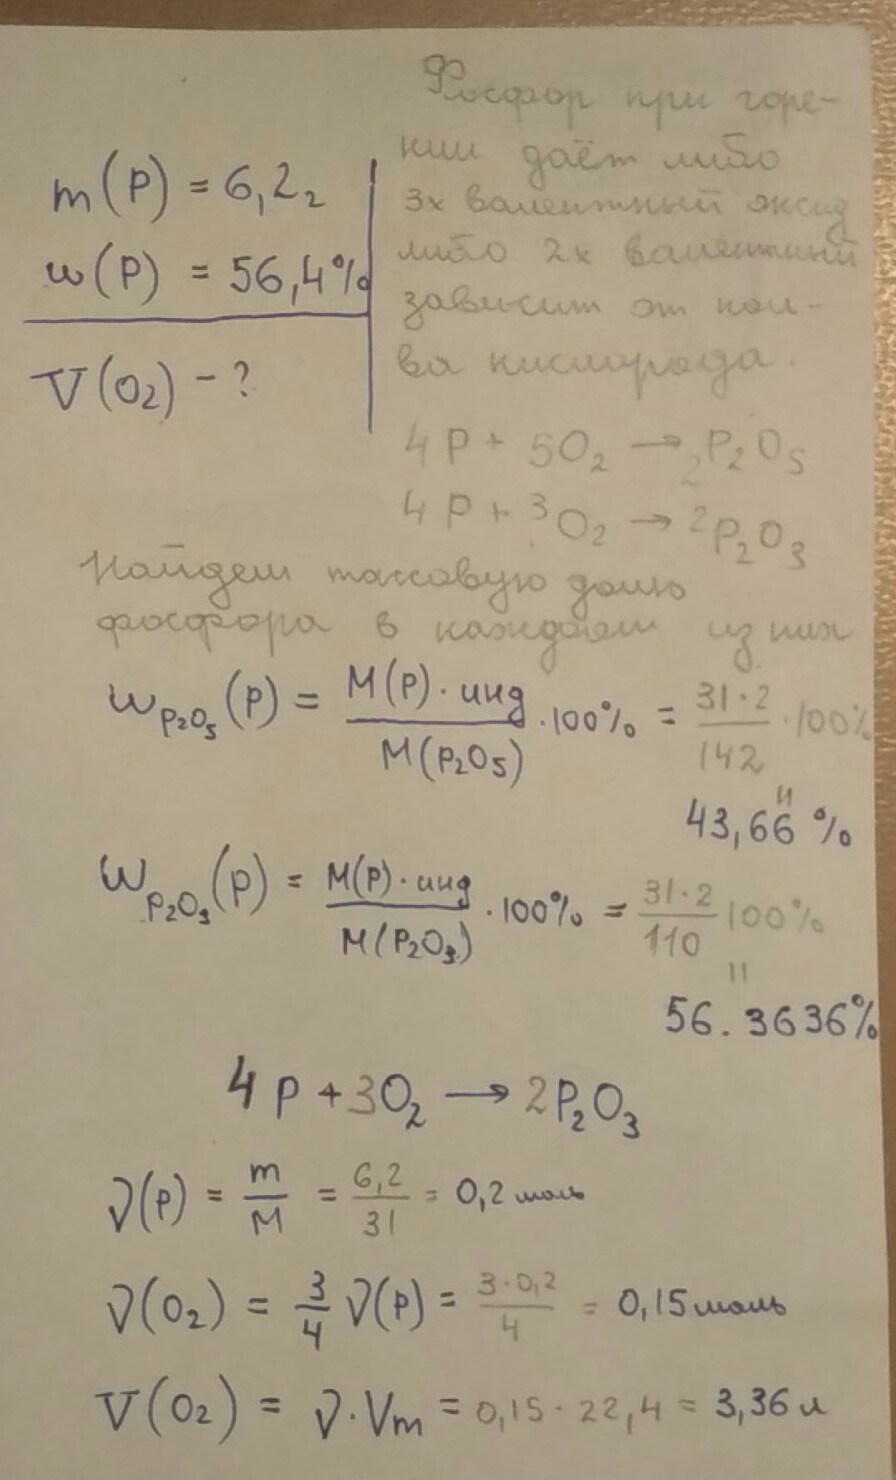 Фосфор при горе-
нии даёт либо
3х валентный оксид
либо 2х валентный
зависит от кол-
ва кислорода.
m(P) = 6,2г
w(P) = 56,4%
V(O₂) - ?
4P + 5O₂ → 2P₂O₅
4P + 3O₂ → 2P₂O₃
Найдем массовую долю
фосфора в каждом из них
W_P₂O₅(P) = M(P)·инд / M(P₂O₅) ·100% = 31·2 / 142 ·100%
=
43,66 %
W_P₂O₃(P) = M(P)·инд / M(P₂O₃) ·100% = 31·2 / 110 100%
=
56.3636%
4P + 3O₂ → 2P₂O₃
ν(P) = m / M = 6,2 / 31 = 0,2 моль
ν(O₂) = 3/4 ν(P) = 3·0,2 / 4 = 0,15 моль
V(O₂) = ν·Vm = 0,15·22,4 = 3,36 л